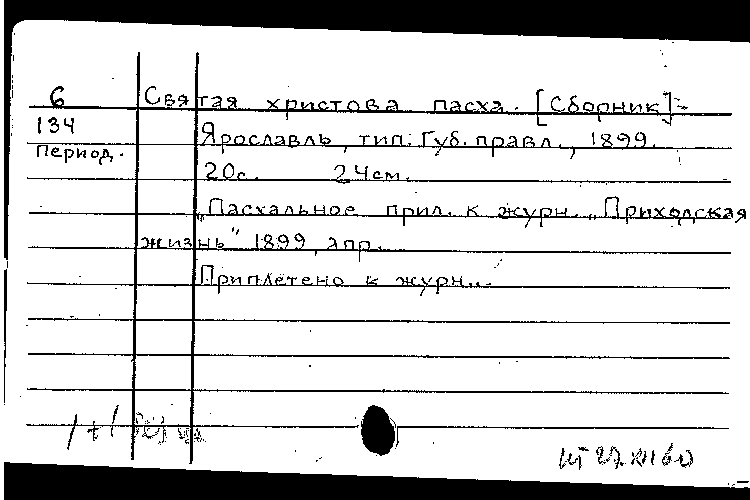 6 Святая христова пасха. [Сборник]-
134 Ярославль, тип. Губ. правл., 1899.
период.
20с. 24см.
"Пасхальное прил. к журн. "Приходская
жизнь" 1899, апр.
Приплетено к журн.
1+1